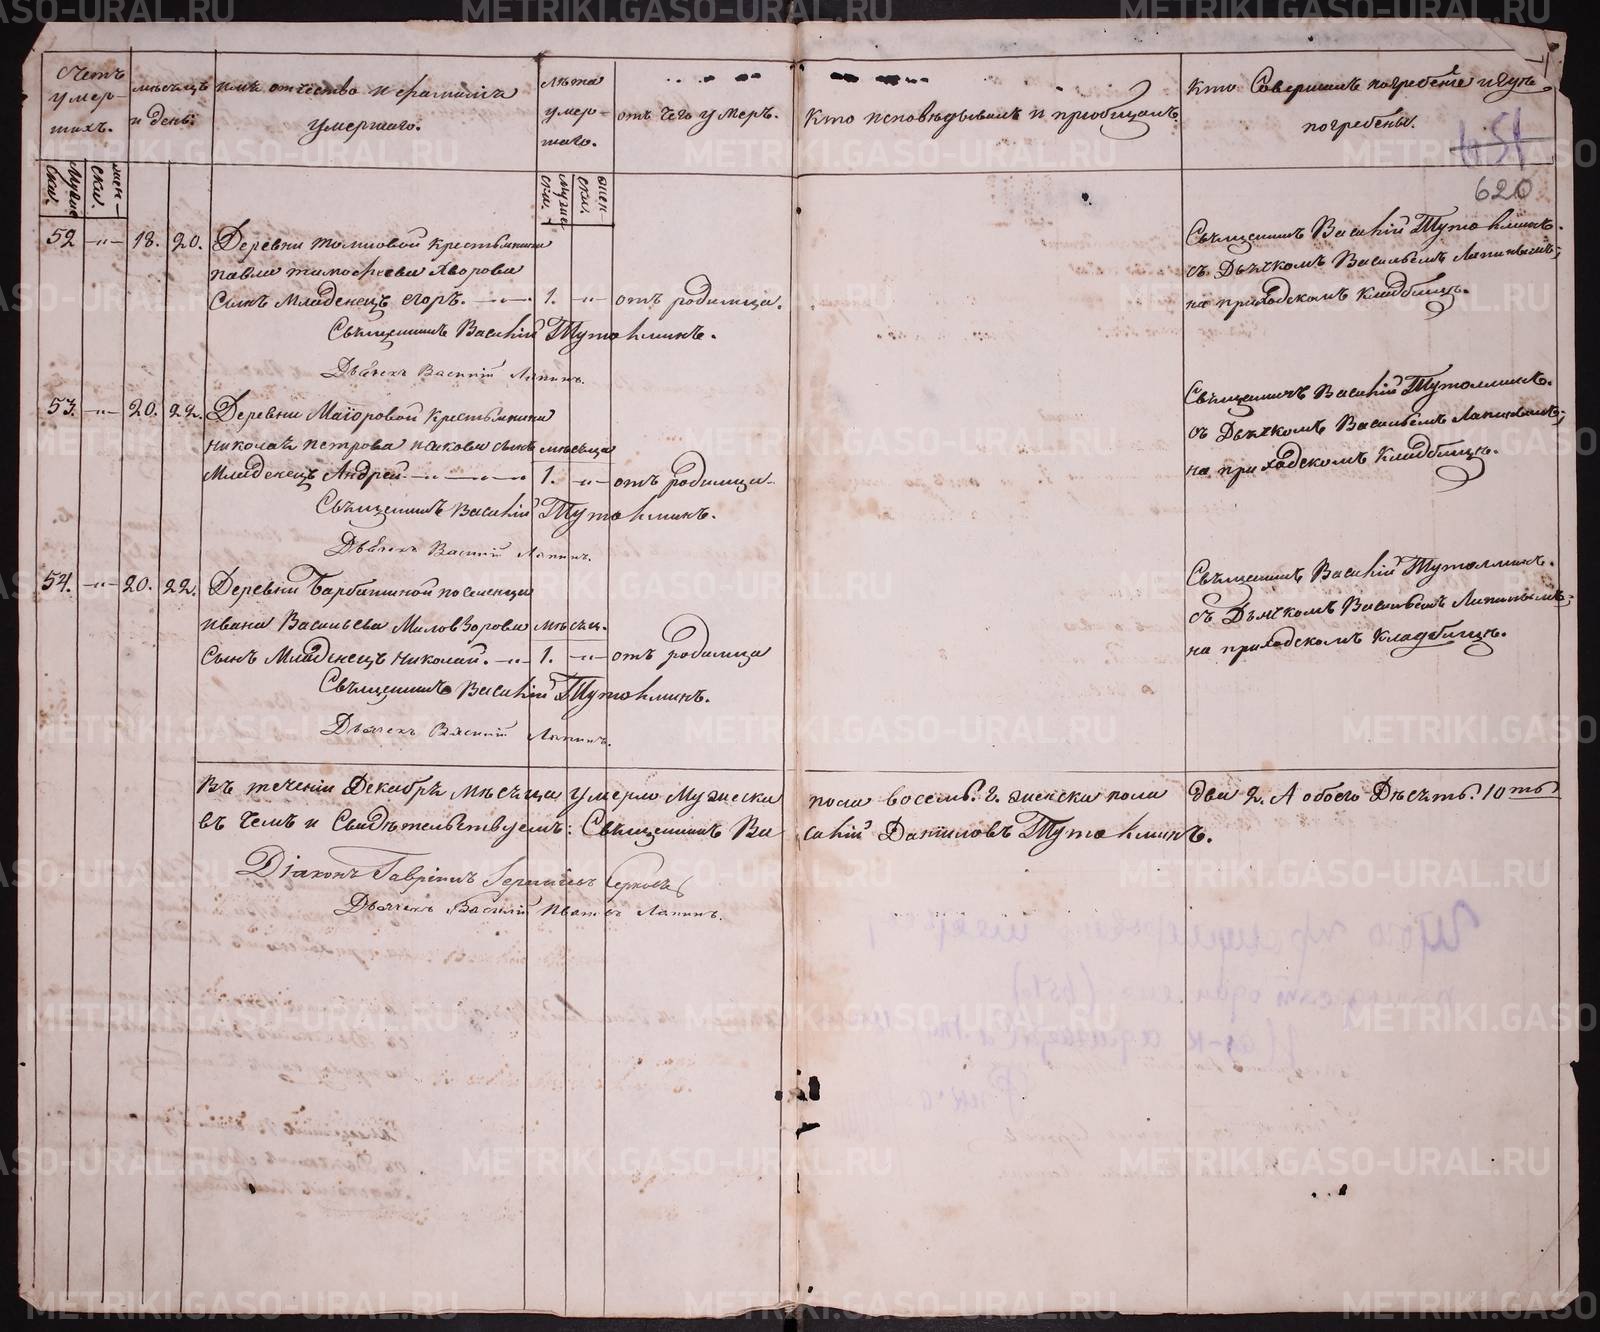 Счетъ умер-шихъ.
мѣсяцъ и день.
имя отчество и фамилія умершаго.
лѣта умер-шаго.
отъ чего умеръ.
Кто исповѣдывалъ и пріобщалъ.
Кто Совершалъ погребеніе и гдѣ погребены.
муже ски.
жен-ски.
муже ски.
жен ски.
651
620
52 —„— 18. 20. Деревни крестьянина
павла тимофеева Хворова
Сынъ Младенецъ егоръ. 1. —„— отъ родимца.
Священникъ Василій Тутолминъ.
Дьячекъ Василий Лапинъ.
Священникъ Василій Тутолминъ.
съ Дьячкомъ Васильемъ Лапинымъ;
на приходскомъ Кладбищѣ.
53. —„— 20. 22. Деревни Маіоровой крестьянина
николая петрова сынъ мѣсяца
Младенецъ Андрей 1. —„— отъ родимца
Священникъ Василій Тутолминъ.
Дьячекъ Василий Лапинъ.
Священникъ Василій Тутолминъ.
съ Дьячкомъ Васильемъ Лапинымъ;
на приходскомъ Кладбищѣ.
54. —„— 20. 22. Деревни поселенца
ивана Васильева Миловзорова мѣсяц.
Сынъ Младенецъ Николай. —„— 1. —„— отъ родимца
Священникъ Василій Тутолминъ.
Дьячекъ Василий Лапинъ.
Священникъ Василій Тутолминъ.
съ Дьячкомъ Васильемъ Лапинымъ;
на приходскомъ Кладбищѣ.
Въ теченіи Декабря мѣсяца умерло Мужеска пола восемь. 8. женска пола два 2. А обоего Дѣсять. 10ть
въ чемъ и Свидѣтельствуемъ: Священникъ Василій Даниловъ Тутолминъ.
Діаконъ Гавріилъ Серковъ
Дьячекъ Василій Ивановъ Лапинъ.
METRIKI.GASO-URAL.RU